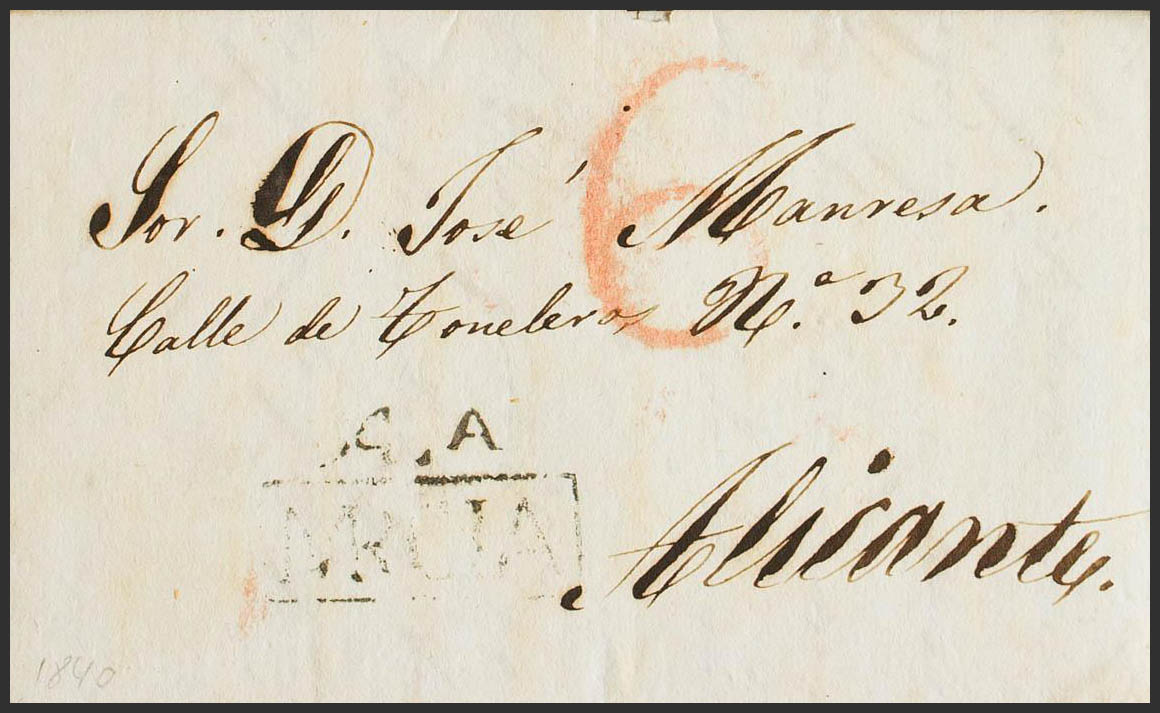 Sor. D. José Manresa.
Calle de Toneleros N.º 32.
6
A
Alicante.
1840